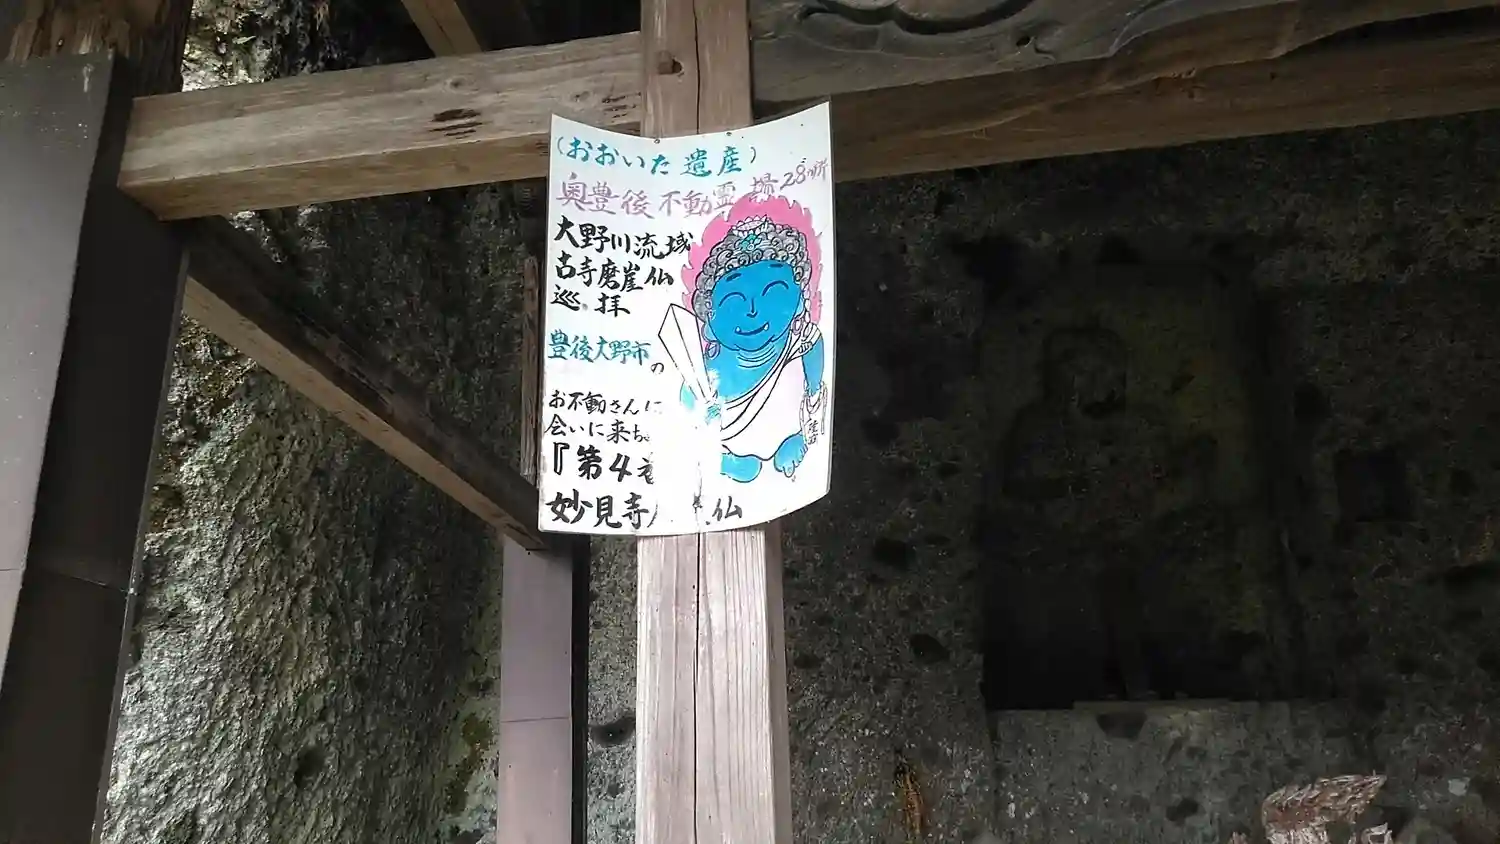 (おおいた遺産)
奥豊後不動霊場28ヶ所
大野川流域
古寺磨崖仏
巡拝
豊後大野市の
お不動さんに
会いに来ち
『第4
妙見寺 仏